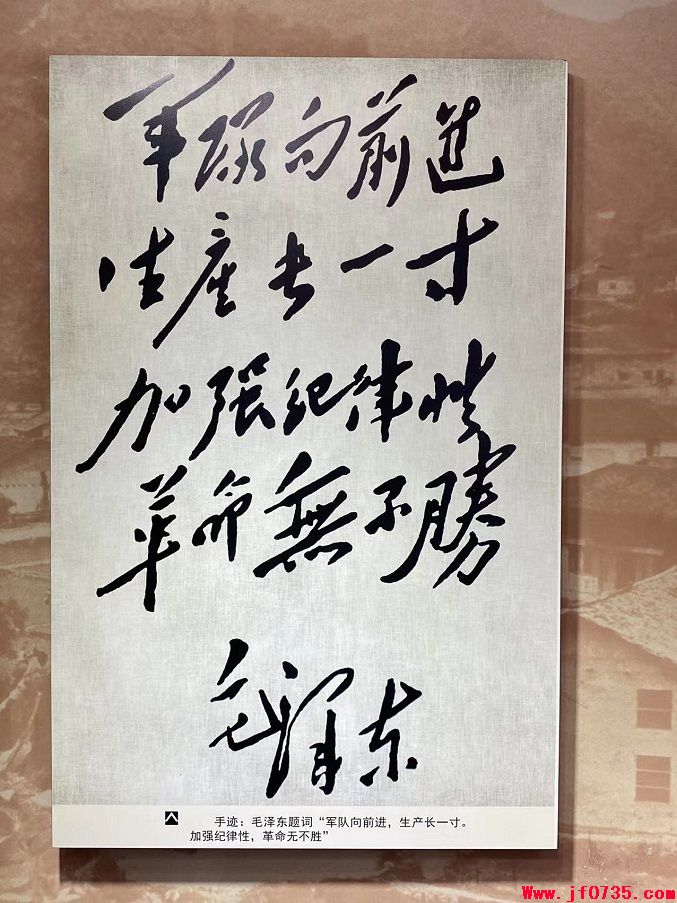 軍隊向前進
生産長一寸
加强紀律性
革命無不勝
毛澤东
手迹：毛泽东题词“军队向前进，生产长一寸。
加强纪律性，革命无不胜”
Www.jf0735.com